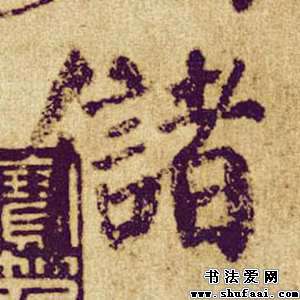 儲
书法爱网
www.shufaai.com